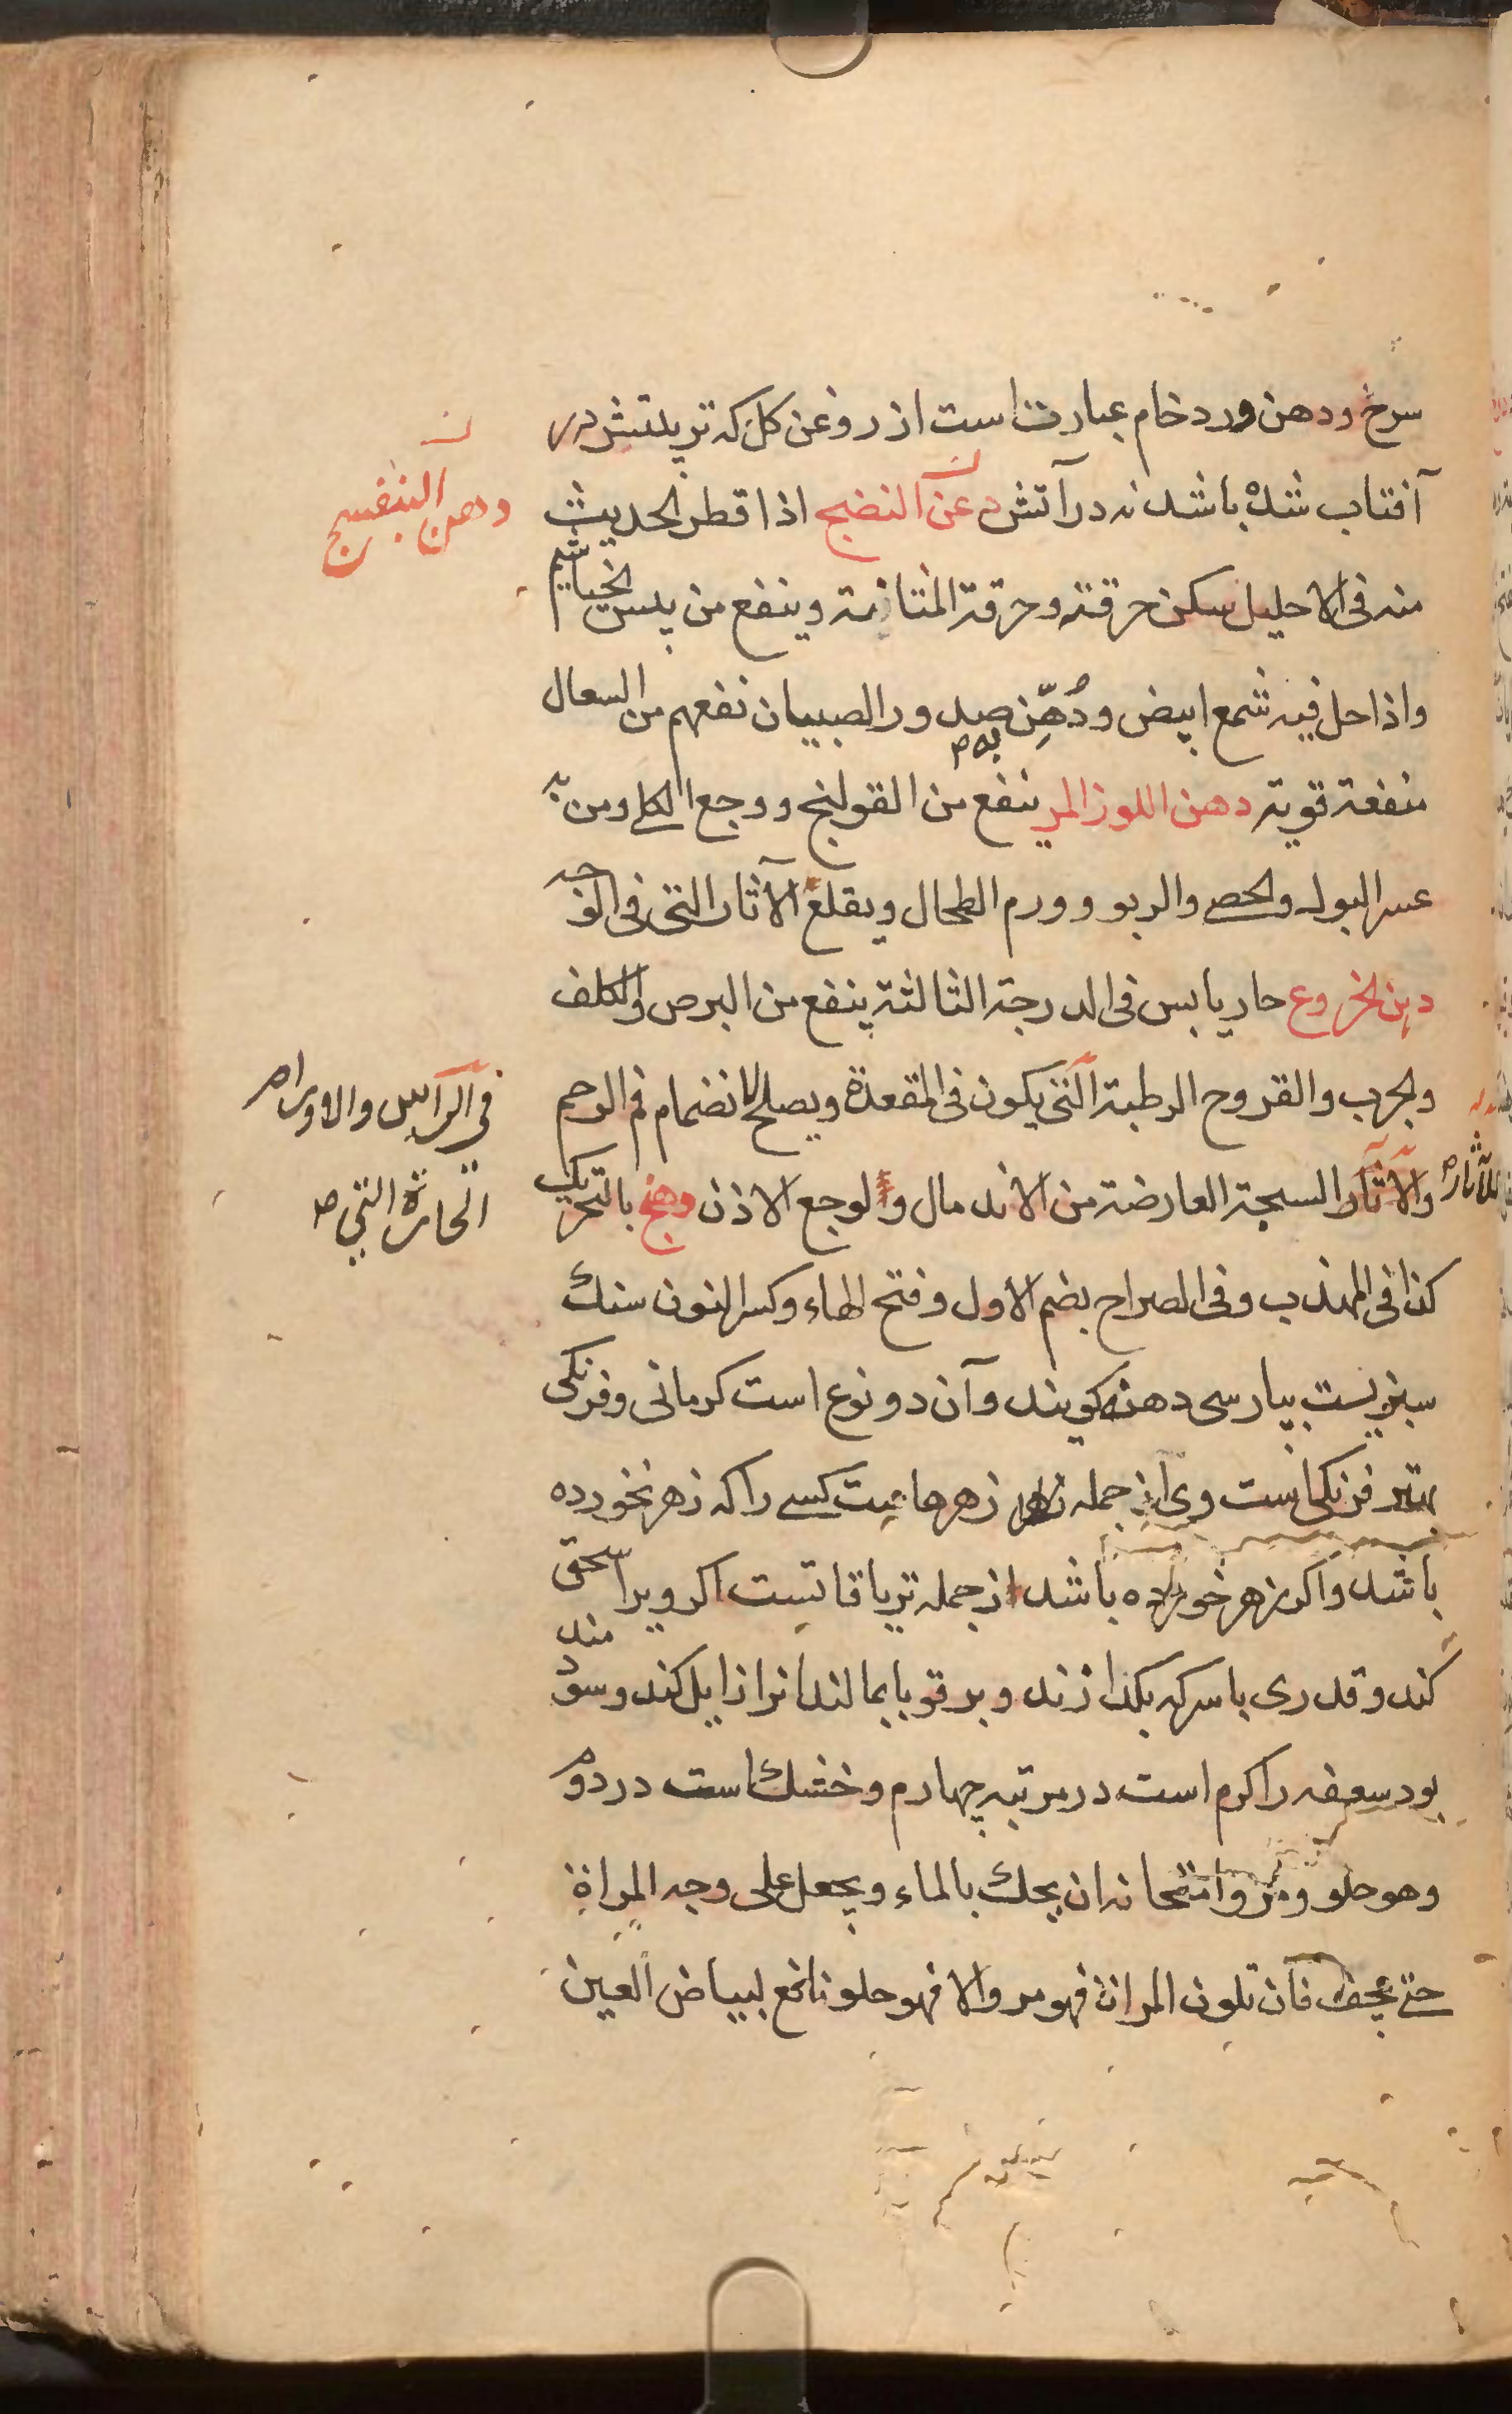 سرخ ودهن ورد خام عبارت است از روغن کل که تربیتش در
آفتاب شده باشد نه در آتش دهن النضیج اذا قطر الحدیث
ودهن البنفسج
منه فی الاحلیل سکن حرقته وحرقة المثانة وینفع من یبس الخیاشیم
واذا حل فیه شمع ابیض ودُهِّن به صدور الصبیان نفعهم من السعال
منفعة قویة دهن اللوز المر ینفع من القولنج ووجع الکلی ومن
عسر البول والحصی والربو وورم الطحال ویقلع الآثار التی فی الوجه
دهن الخروع حار یابس فی الدرجة الثالثة ینفع من البرص والکلف
والجرب والقروح الرطبة التی یکون فی المقعدة ویصلح لانضمام فم الرحم
فی الراس والاورام
الحارة التی
للآثار
والآثار السمجة العارضة من الاندمال ولوجع الاذن دهنج بالتحریک
کذا فی المهذب وفی الصراح بضم الاول وفتح الهاء وکسر النون سنک
سبزیست بپارسی دهنه کویند وآن دو نوع است کرمانی وفرنکی
بهتر فرنکی است وی از جمله زهرهاست کسی را که زهر نخورده
باشد واکر زهر خورده باشد از جمله تریاقاتست اکر ویرا سحق
کند وقدری با سرکه بکدازند وبر قوبا بمالند انرا زایل کند وسودمند
بود سعفه را کرم است در مرتبه چهارم وخشک است در دوم
وهو حلو ومر وامتحانه ان یحک بالماء ویجعل علی وجه المراة
حتی یجف فان تلون المراة فهو مر والا فهو حلو نافع لبیاض العین